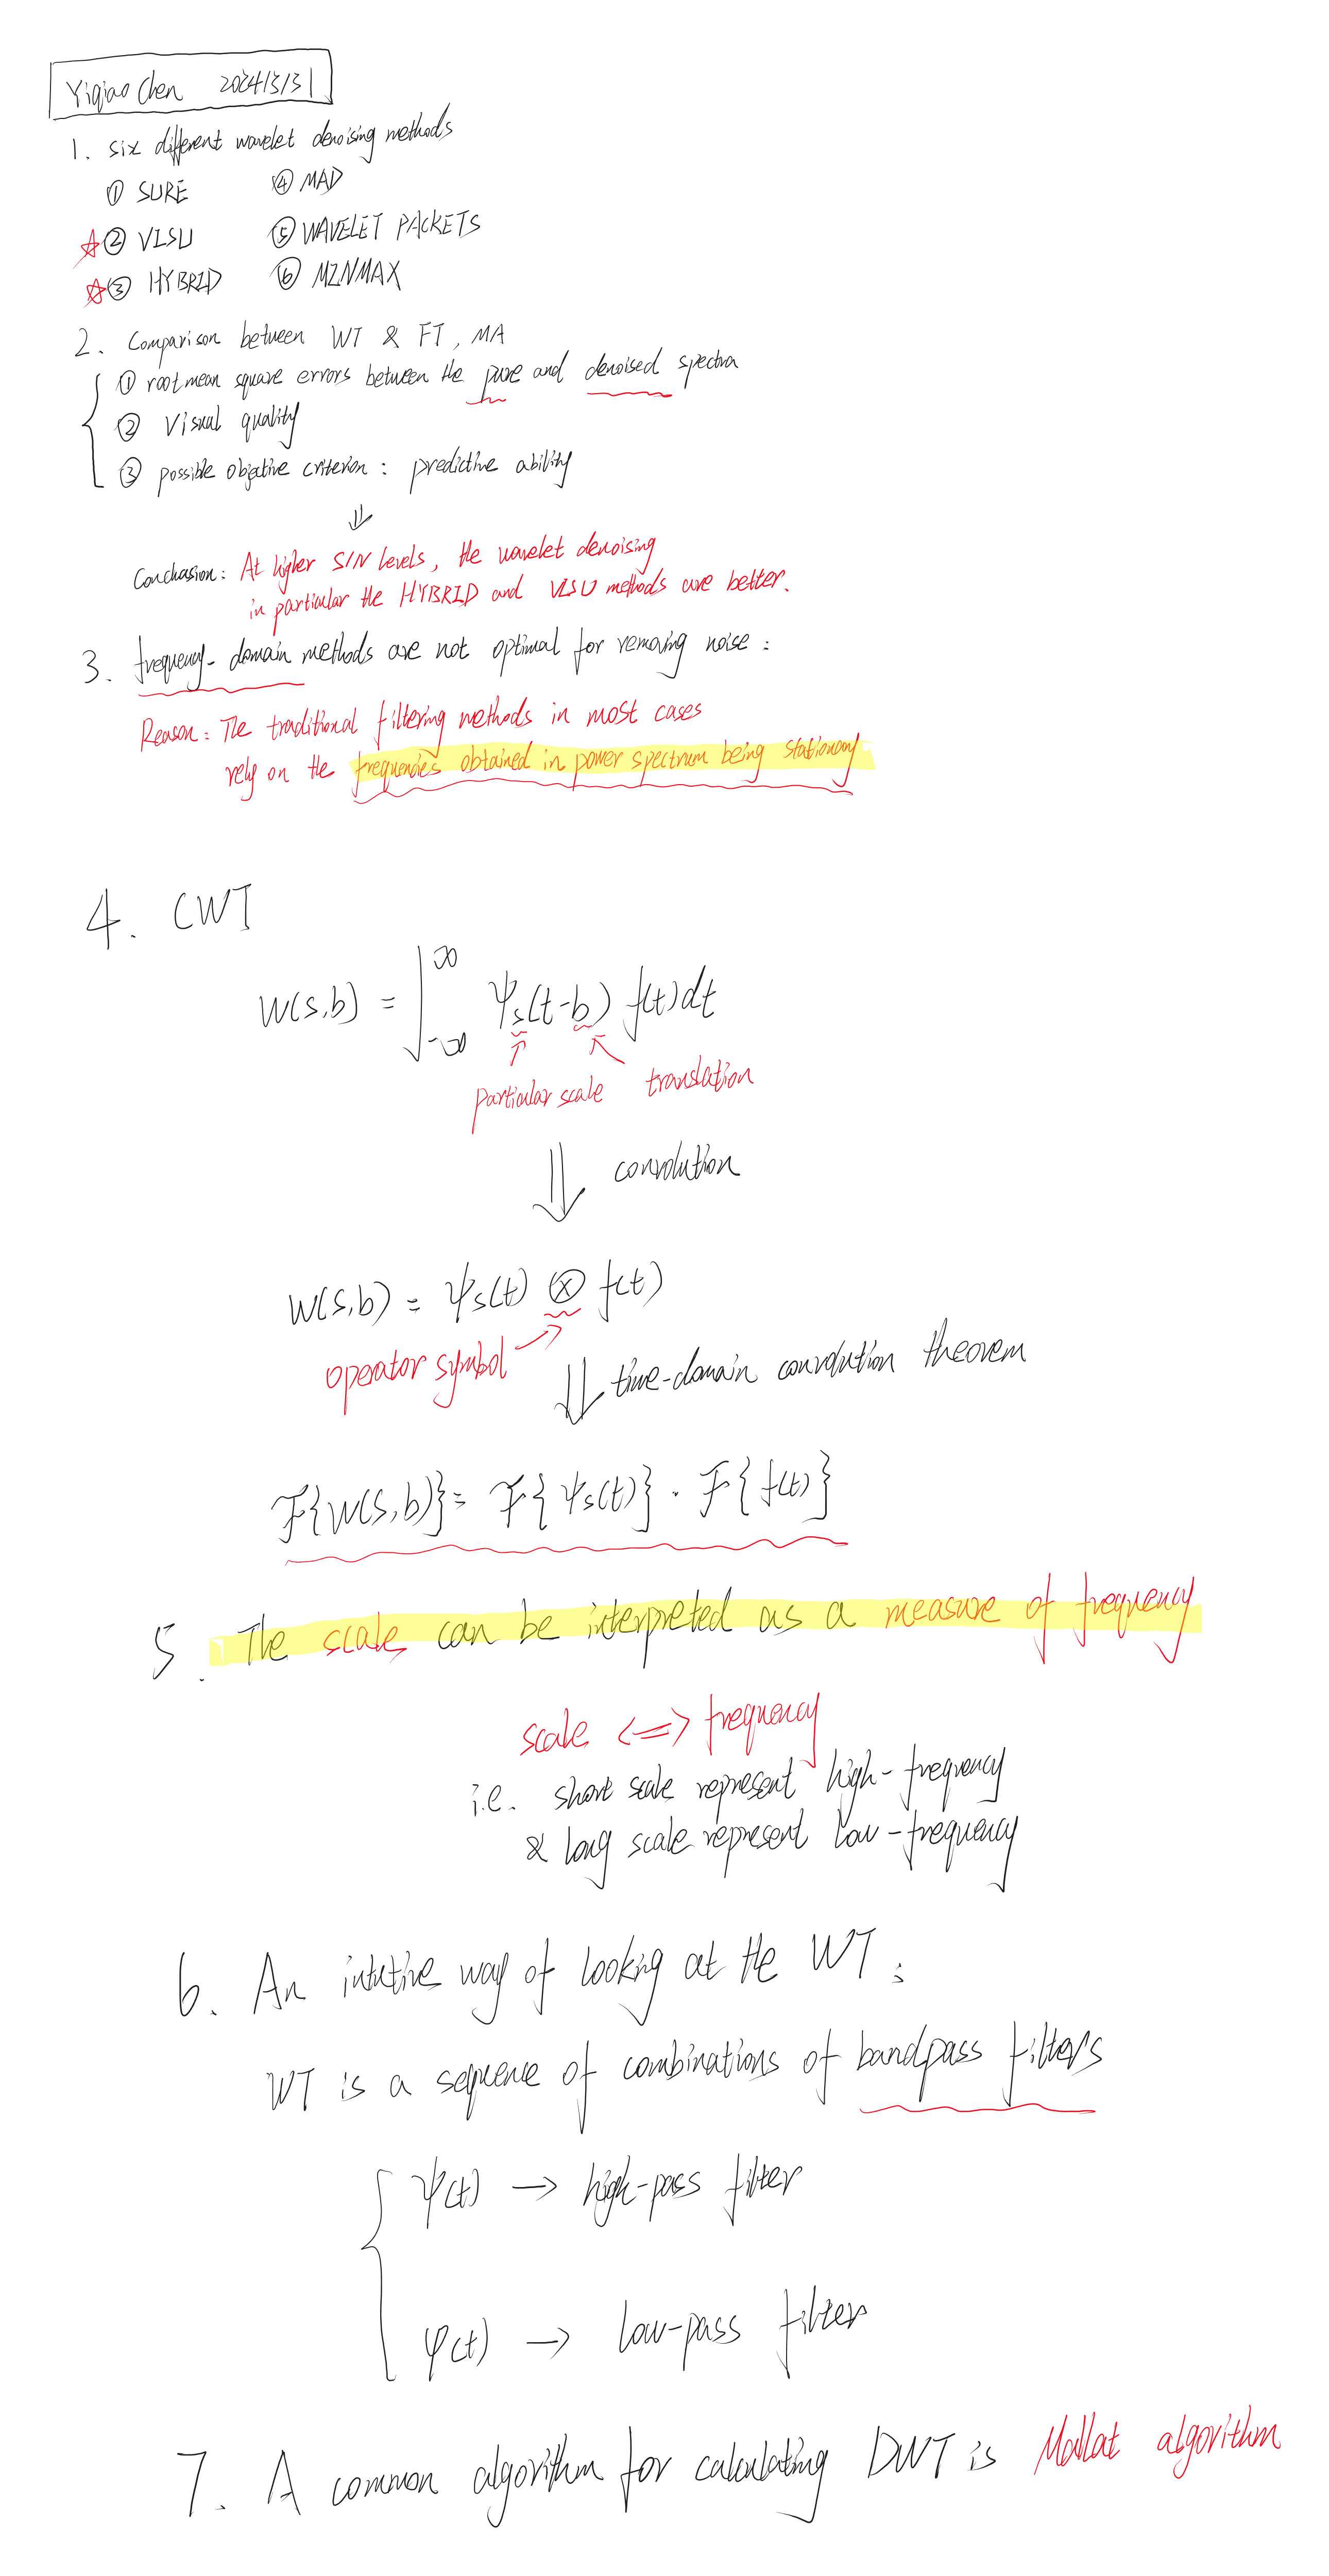 Yiqiao Chen 2024/3/31
1. six different wavelet denoising methods
① SURE ④ MAD
☆② VISU ⑤ WAVELET PACKETS
☆③ HYBRID ⑥ MINMAX
2. Comparison between WT & FT, MA
① root mean square errors between the pure and denoised spectra
② Visual quality
③ possible objective criterion: predictive ability
⇓
Conclusion: At higher S/N levels, the wavelet denoising
in particular the HYBRID and VISU methods are better.
3. frequency-domain methods are not optimal for removing noise:
Reason: The traditional filtering methods in most cases
rely on the frequencies obtained in power spectrum being stationary
4. CWT
W(s,b) = ∫_{-∞}^{∞} Ψs(t-b) f(t)dt
particular scale translation
⇓ convolution
W(s,b) = Ψs(t) ⊗ f(t)
operator symbol → ⇓ time-domain convolution theorem
F{W(s,b)} = F{Ψs(t)} · F{f(t)}
5. The scale can be interpreted as a measure of frequency
scale <=> frequency
i.e. short scale represent high-frequency
& long scale represent low-frequency
6. An intutive way of looking at the WT:
WT is a sequence of combinations of bandpass filters
ψ(t) → high-pass filter
φ(t) → low-pass filter
7. A common algorithm for calculating DWT is Mallat algorithm